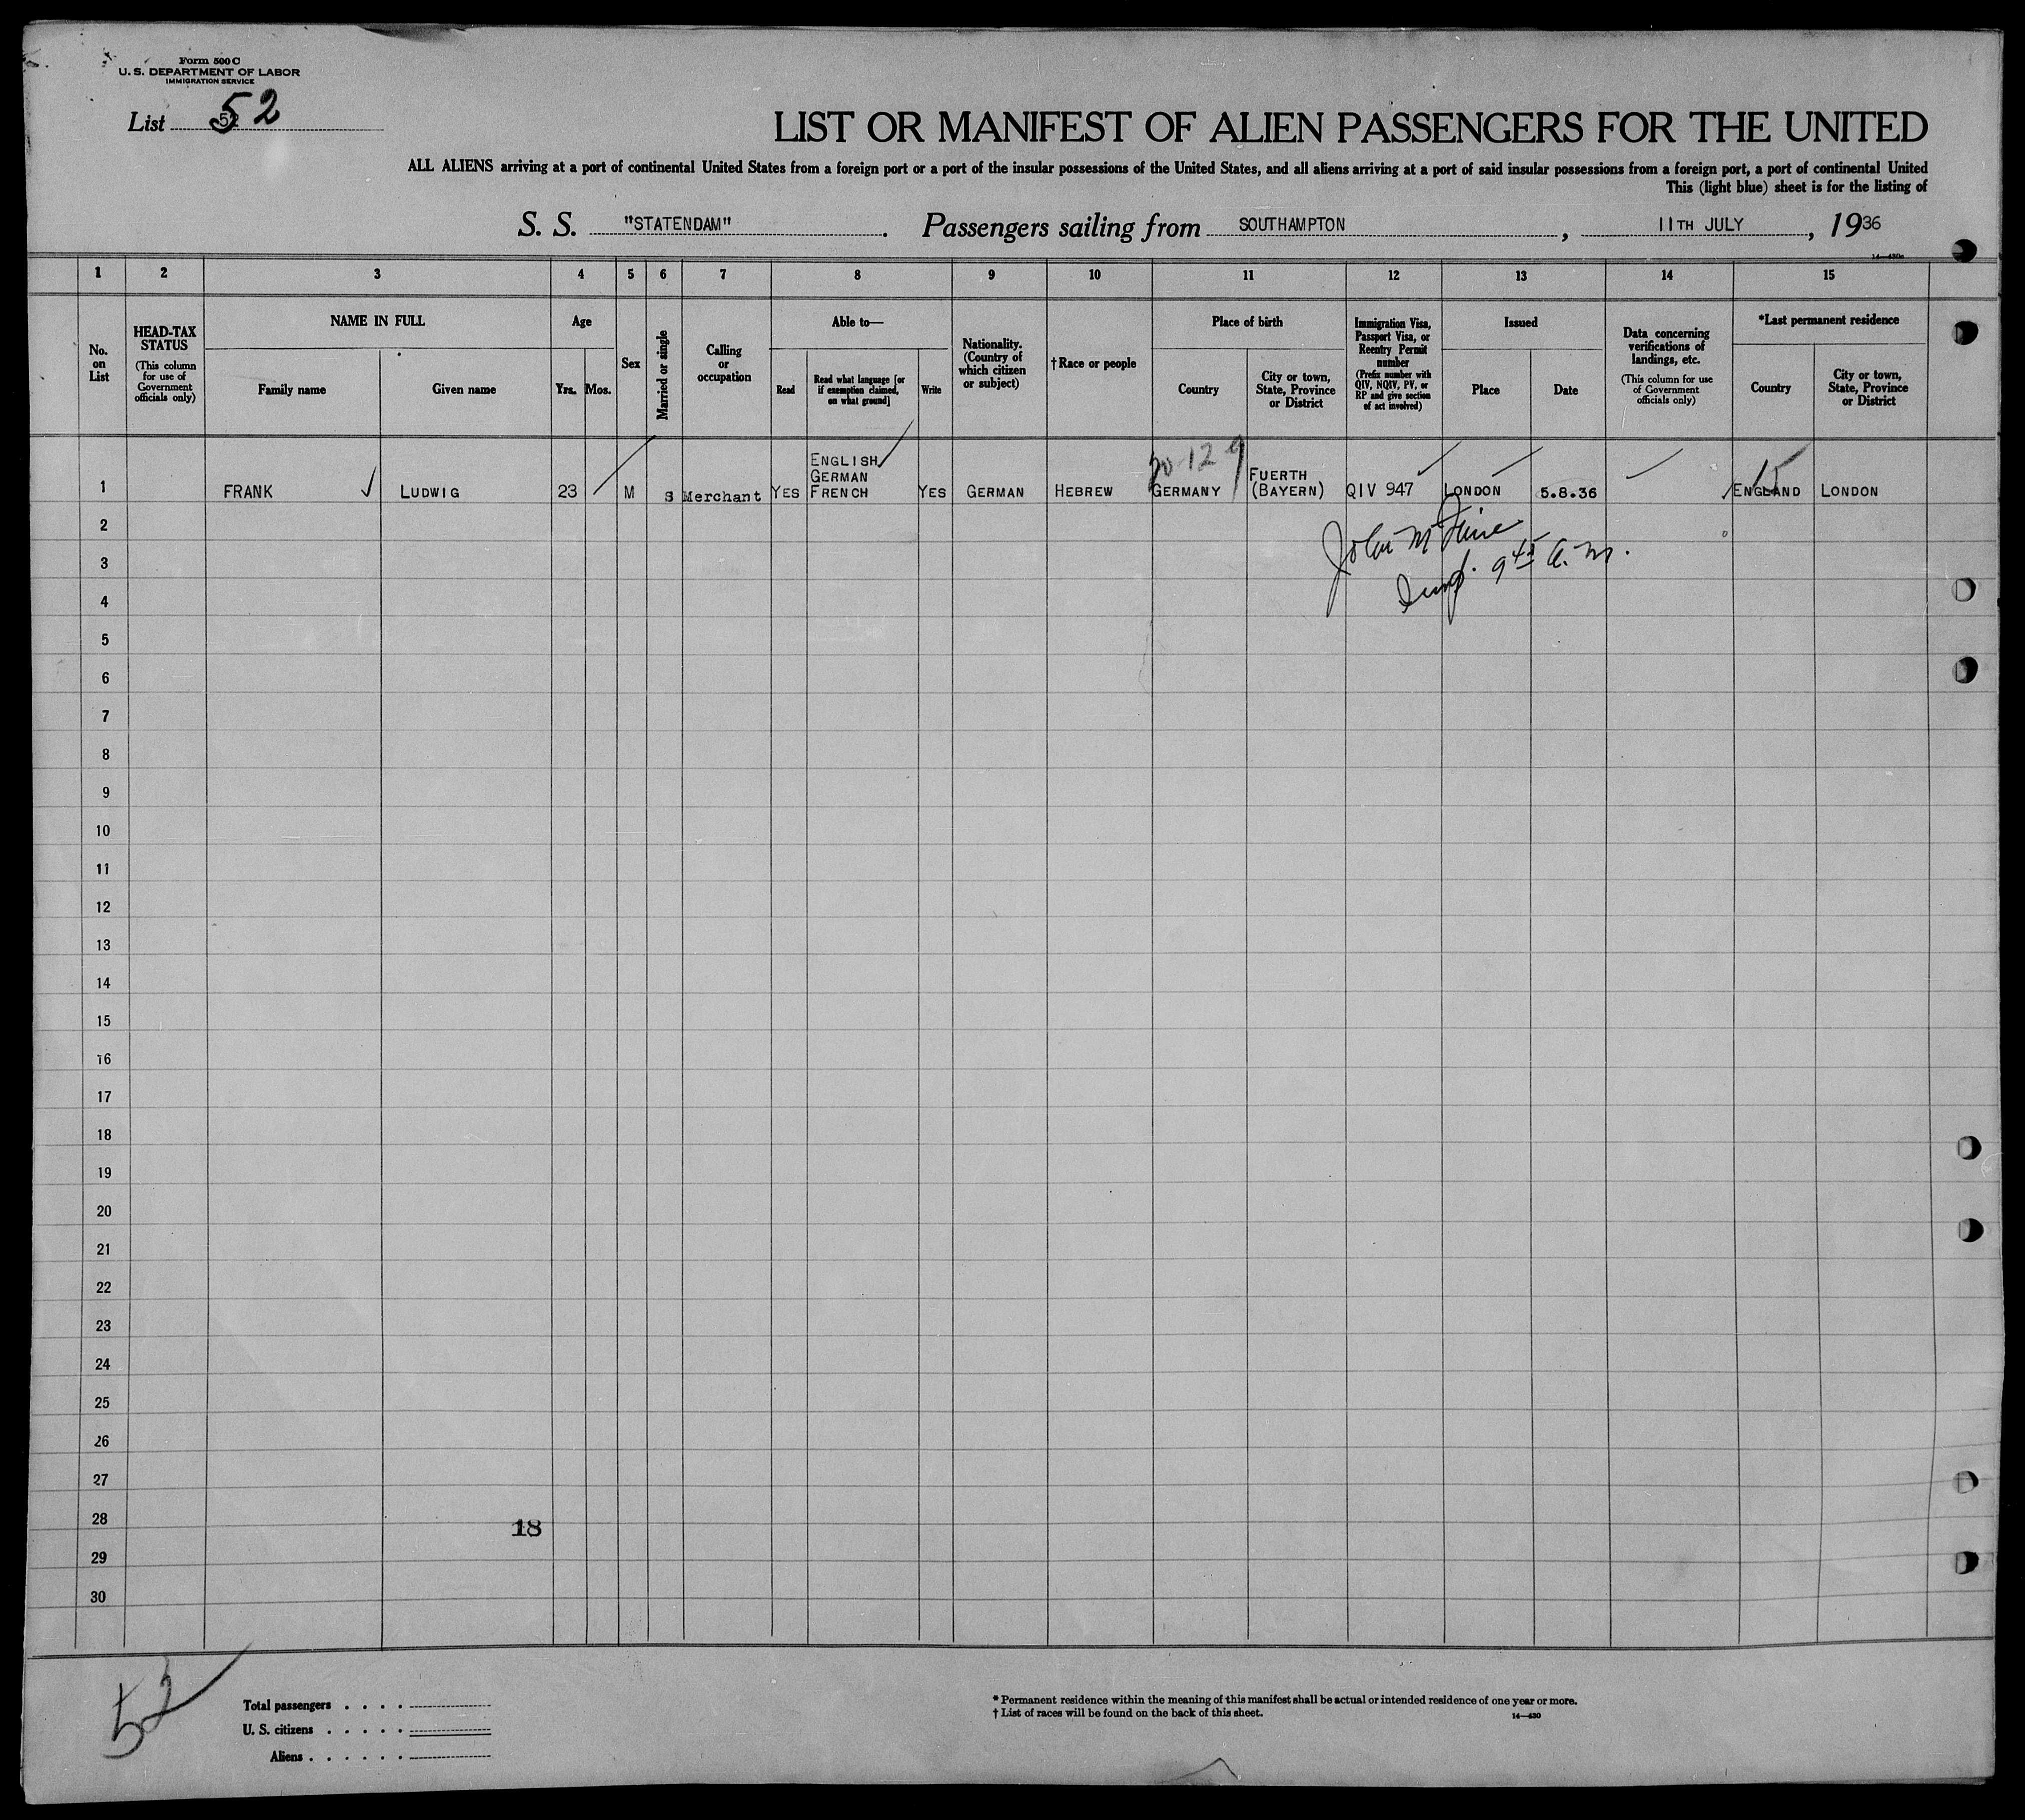 Form 500 C
U. S. DEPARTMENT OF LABOR
IMMIGRATION SERVICE
List 52
LIST OR MANIFEST OF ALIEN PASSENGERS FOR THE UNITED
ALL ALIENS arriving at a port of continental United States from a foreign port or a port of the insular possessions of the United States, and all aliens arriving at a port of said insular possessions from a foreign port, a port of continental United
This (light blue) sheet is for the listing of
S. S. "STATENDAM". Passengers sailing from SOUTHAMPTON, 11TH JULY, 1936
14—430e
1 2 3 4 5 6 7 8 9 10 11 12 13 14 15
No. on List
HEAD-TAX STATUS
(This column for use of Government officials only)
NAME IN FULL
Family name
Given name
Age
Yrs. Mos.
Sex
Married or single
Calling or occupation
Able to—
Read
Read what language [or if exemption claimed, on what ground]
Write
Nationality. (Country of which citizen or subject)
† Race or people
Place of birth
Country
City or town, State, Province or District
Immigration Visa, Passport Visa, or Reentry Permit number
(Prefix number with QIV, NQIV, PV, or RP and give section of act involved)
Issued
Place
Date
Data concerning verifications of landings, etc.
(This column for use of Government officials only)
*Last permanent residence
Country
City or town, State, Province or District
1 FRANK LUDWIG 23 M S Merchant YES ENGLISH GERMAN FRENCH YES GERMAN HEBREW GERMANY FUERTH (BAYERN) QIV 947 LONDON 5.8.36 15 ENGLAND LONDON
2
3
9 45 a.m.
4
5
6
7
8
9
10
11
12
13
14
15
16
17
18
19
20
21
22
23
24
25
26
27
28
18
29
30
52
Total passengers . . . .
U. S. citizens . . . . .
Aliens . . . . . .
* Permanent residence within the meaning of this manifest shall be actual or intended residence of one year or more.
† List of races will be found on the back of this sheet.
14—430